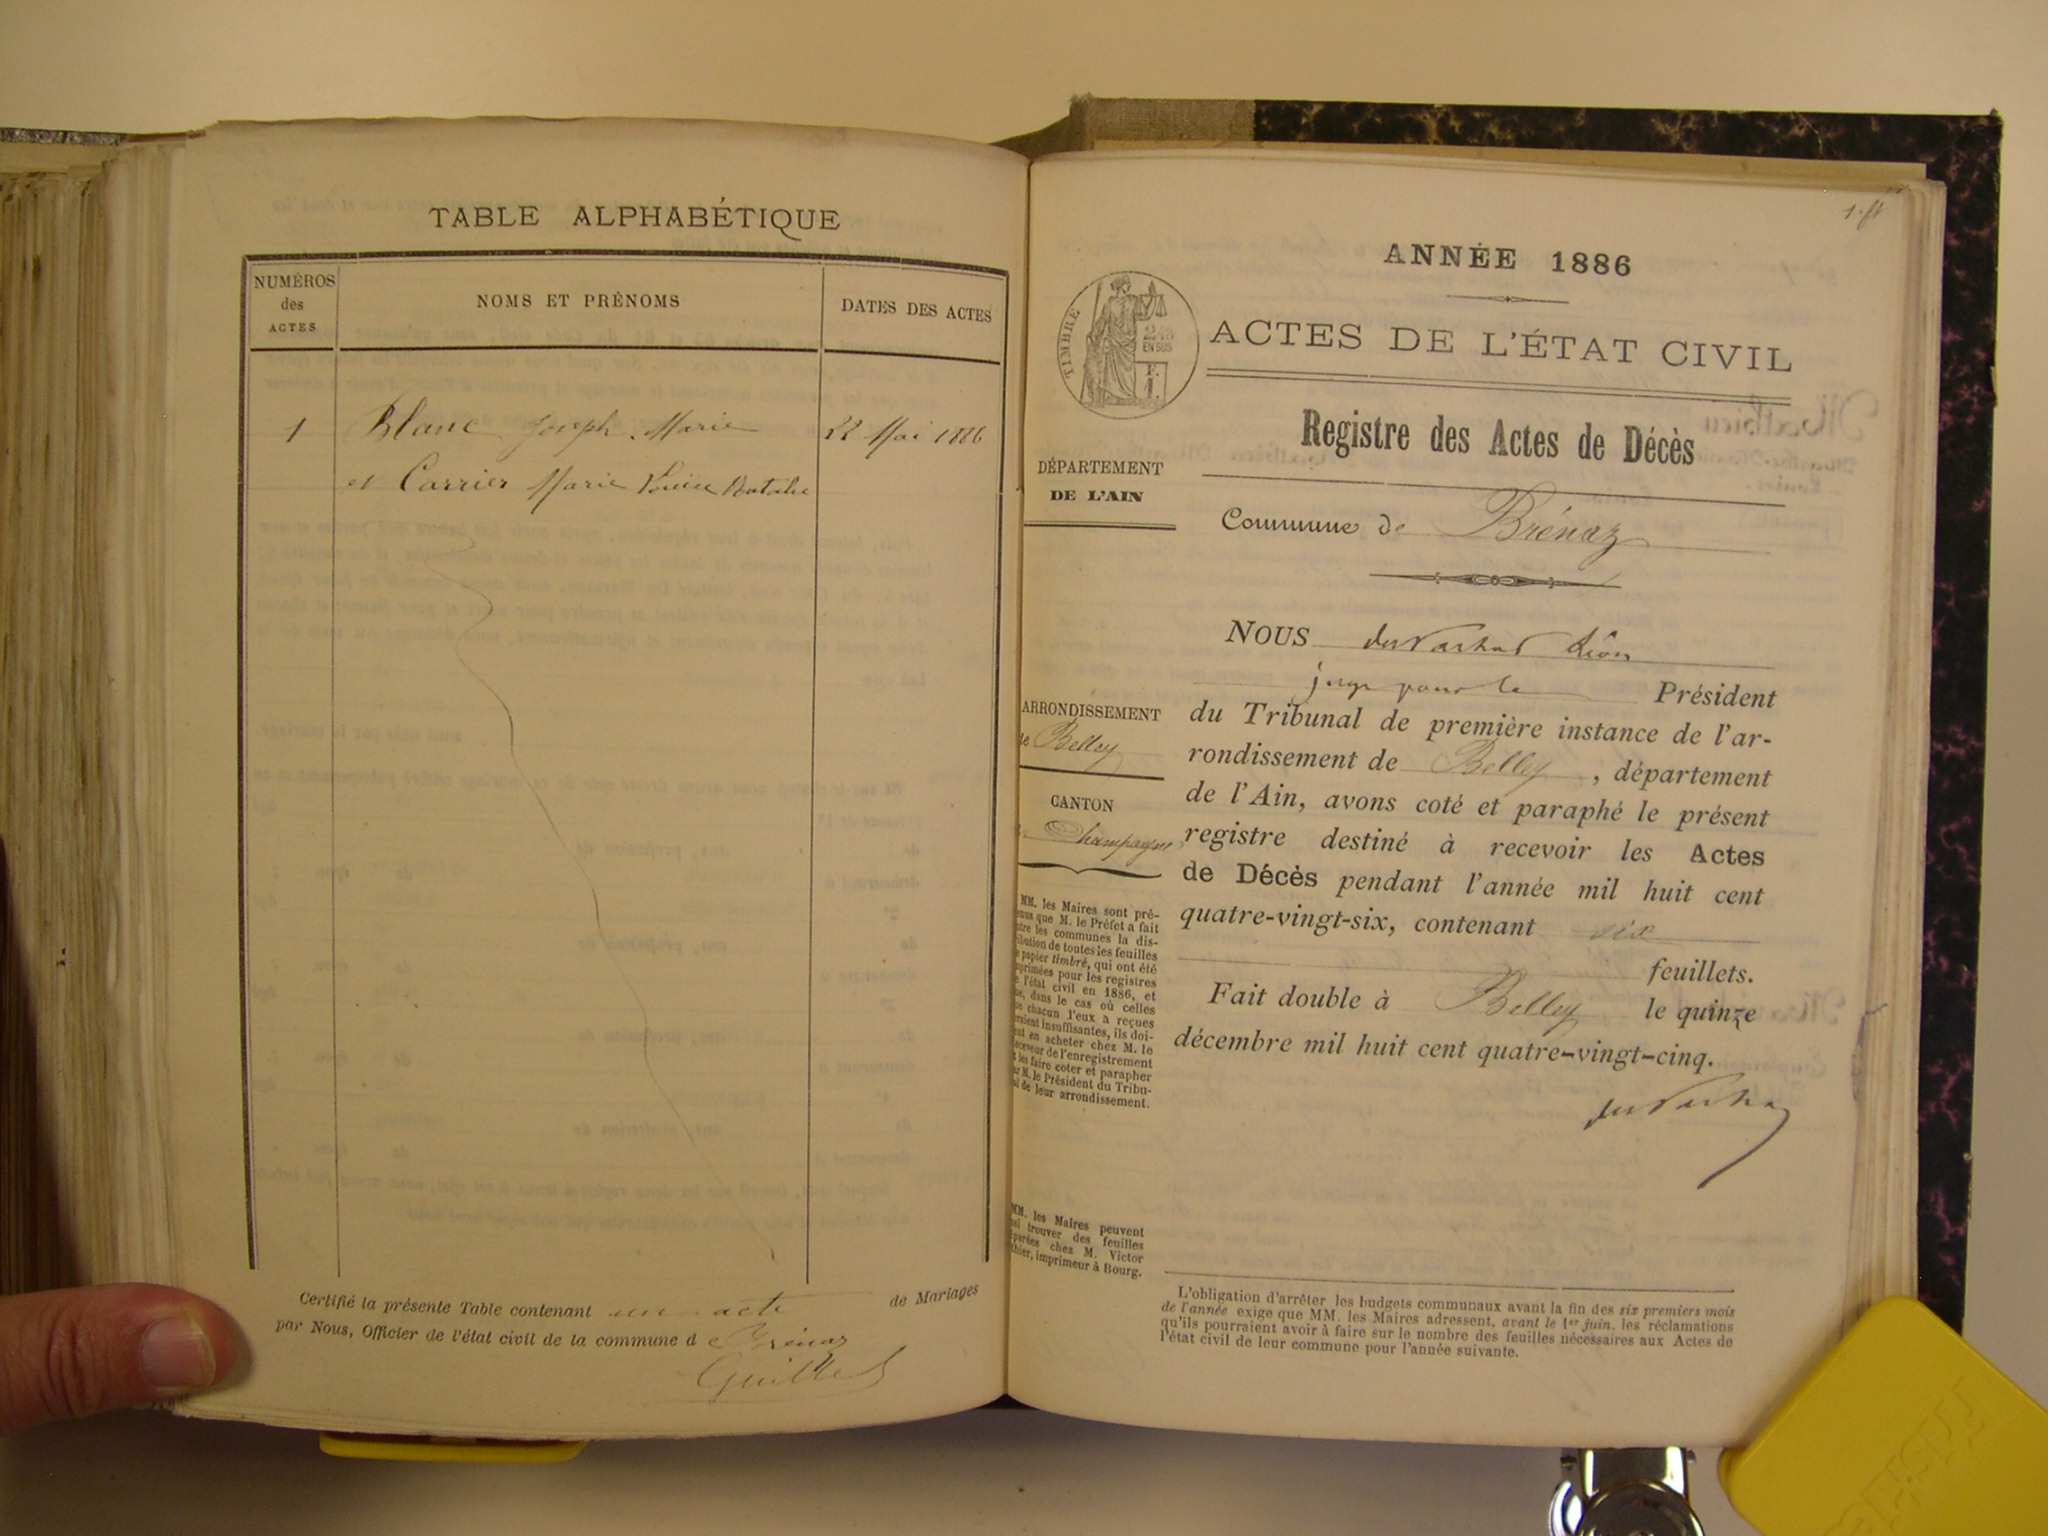 TABLE ALPHABÉTIQUE
NUMÉROS
des
ACTES
NOMS ET PRÉNOMS
DATES DES ACTES
1 Blanc Joseph Marie 22 Mai 1886
et Carrier Marie Louise Natalie
Certifié la présente Table contenant un acte de Mariages
par Nous, Officier de l'état civil de la commune d e Brénaz
ANNÉE 1886
TIMBRE
EN SUS
ACTES DE L'ÉTAT CIVIL
Registre des Actes de Décès
DÉPARTEMENT
DE L'AIN
Commune de Brénaz
NOUS Léon
juge pour le Président
ARRONDISSEMENT
de Belley
CANTON
Champagne
du Tribunal de première instance de l'ar-
rondissement de Belley, département
de l'Ain, avons coté et paraphé le présent
registre destiné à recevoir les Actes
de Décès pendant l'année mil huit cent
quatre-vingt-six, contenant six
feuillets.
Fait double à Belley le quinze
décembre mil huit cent quatre-vingt-cinq.
MM. les Maires sont pré-
enus que M. le Préfet a fait
ntre les communes la dis-
ribution de toutes les feuilles
e papier timbré, qui ont été
mprimées pour les registres
e l'état civil en 1886, et
ue, dans le cas où celles
ue chacun d'eux a reçues
eraient insuffisantes, ils doi-
ent en acheter chez M. le
eceveur de l'enregistrement
t les faire coter et parapher
ar M. le Président du Tribu-
al de leur arrondissement.
MM. les Maires peuvent
ssi trouver des feuilles
parées chez M. Victor
thier, imprimeur à Bourg.
L'obligation d'arrêter les budgets communaux avant la fin des six premiers mois
de l'année exige que MM. les Maires adressent, avant le 1er juin, les réclamations
qu'ils pourraient avoir à faire sur le nombre des feuilles nécessaires aux Actes de
l'état civil de leur commune pour l'année suivante.